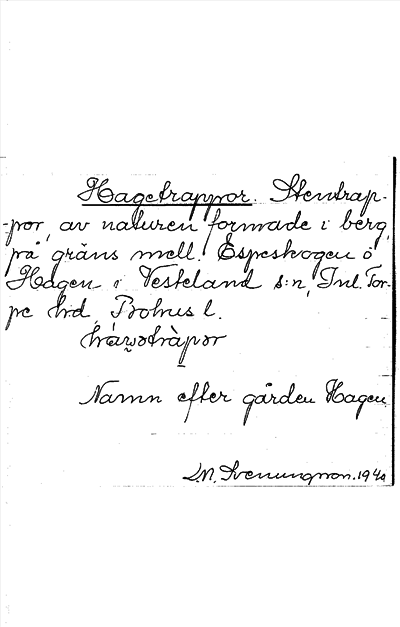 Hagetrappor. Stentrap-
-por, av naturen formade i berg,
på gräns mell. Espeskogen o
Hagen i Vesteland s:n, Inl. Tor-
pe hrd, Bohus l.
Namn efter gården Hagen
S.N. Svenungsson. 1940